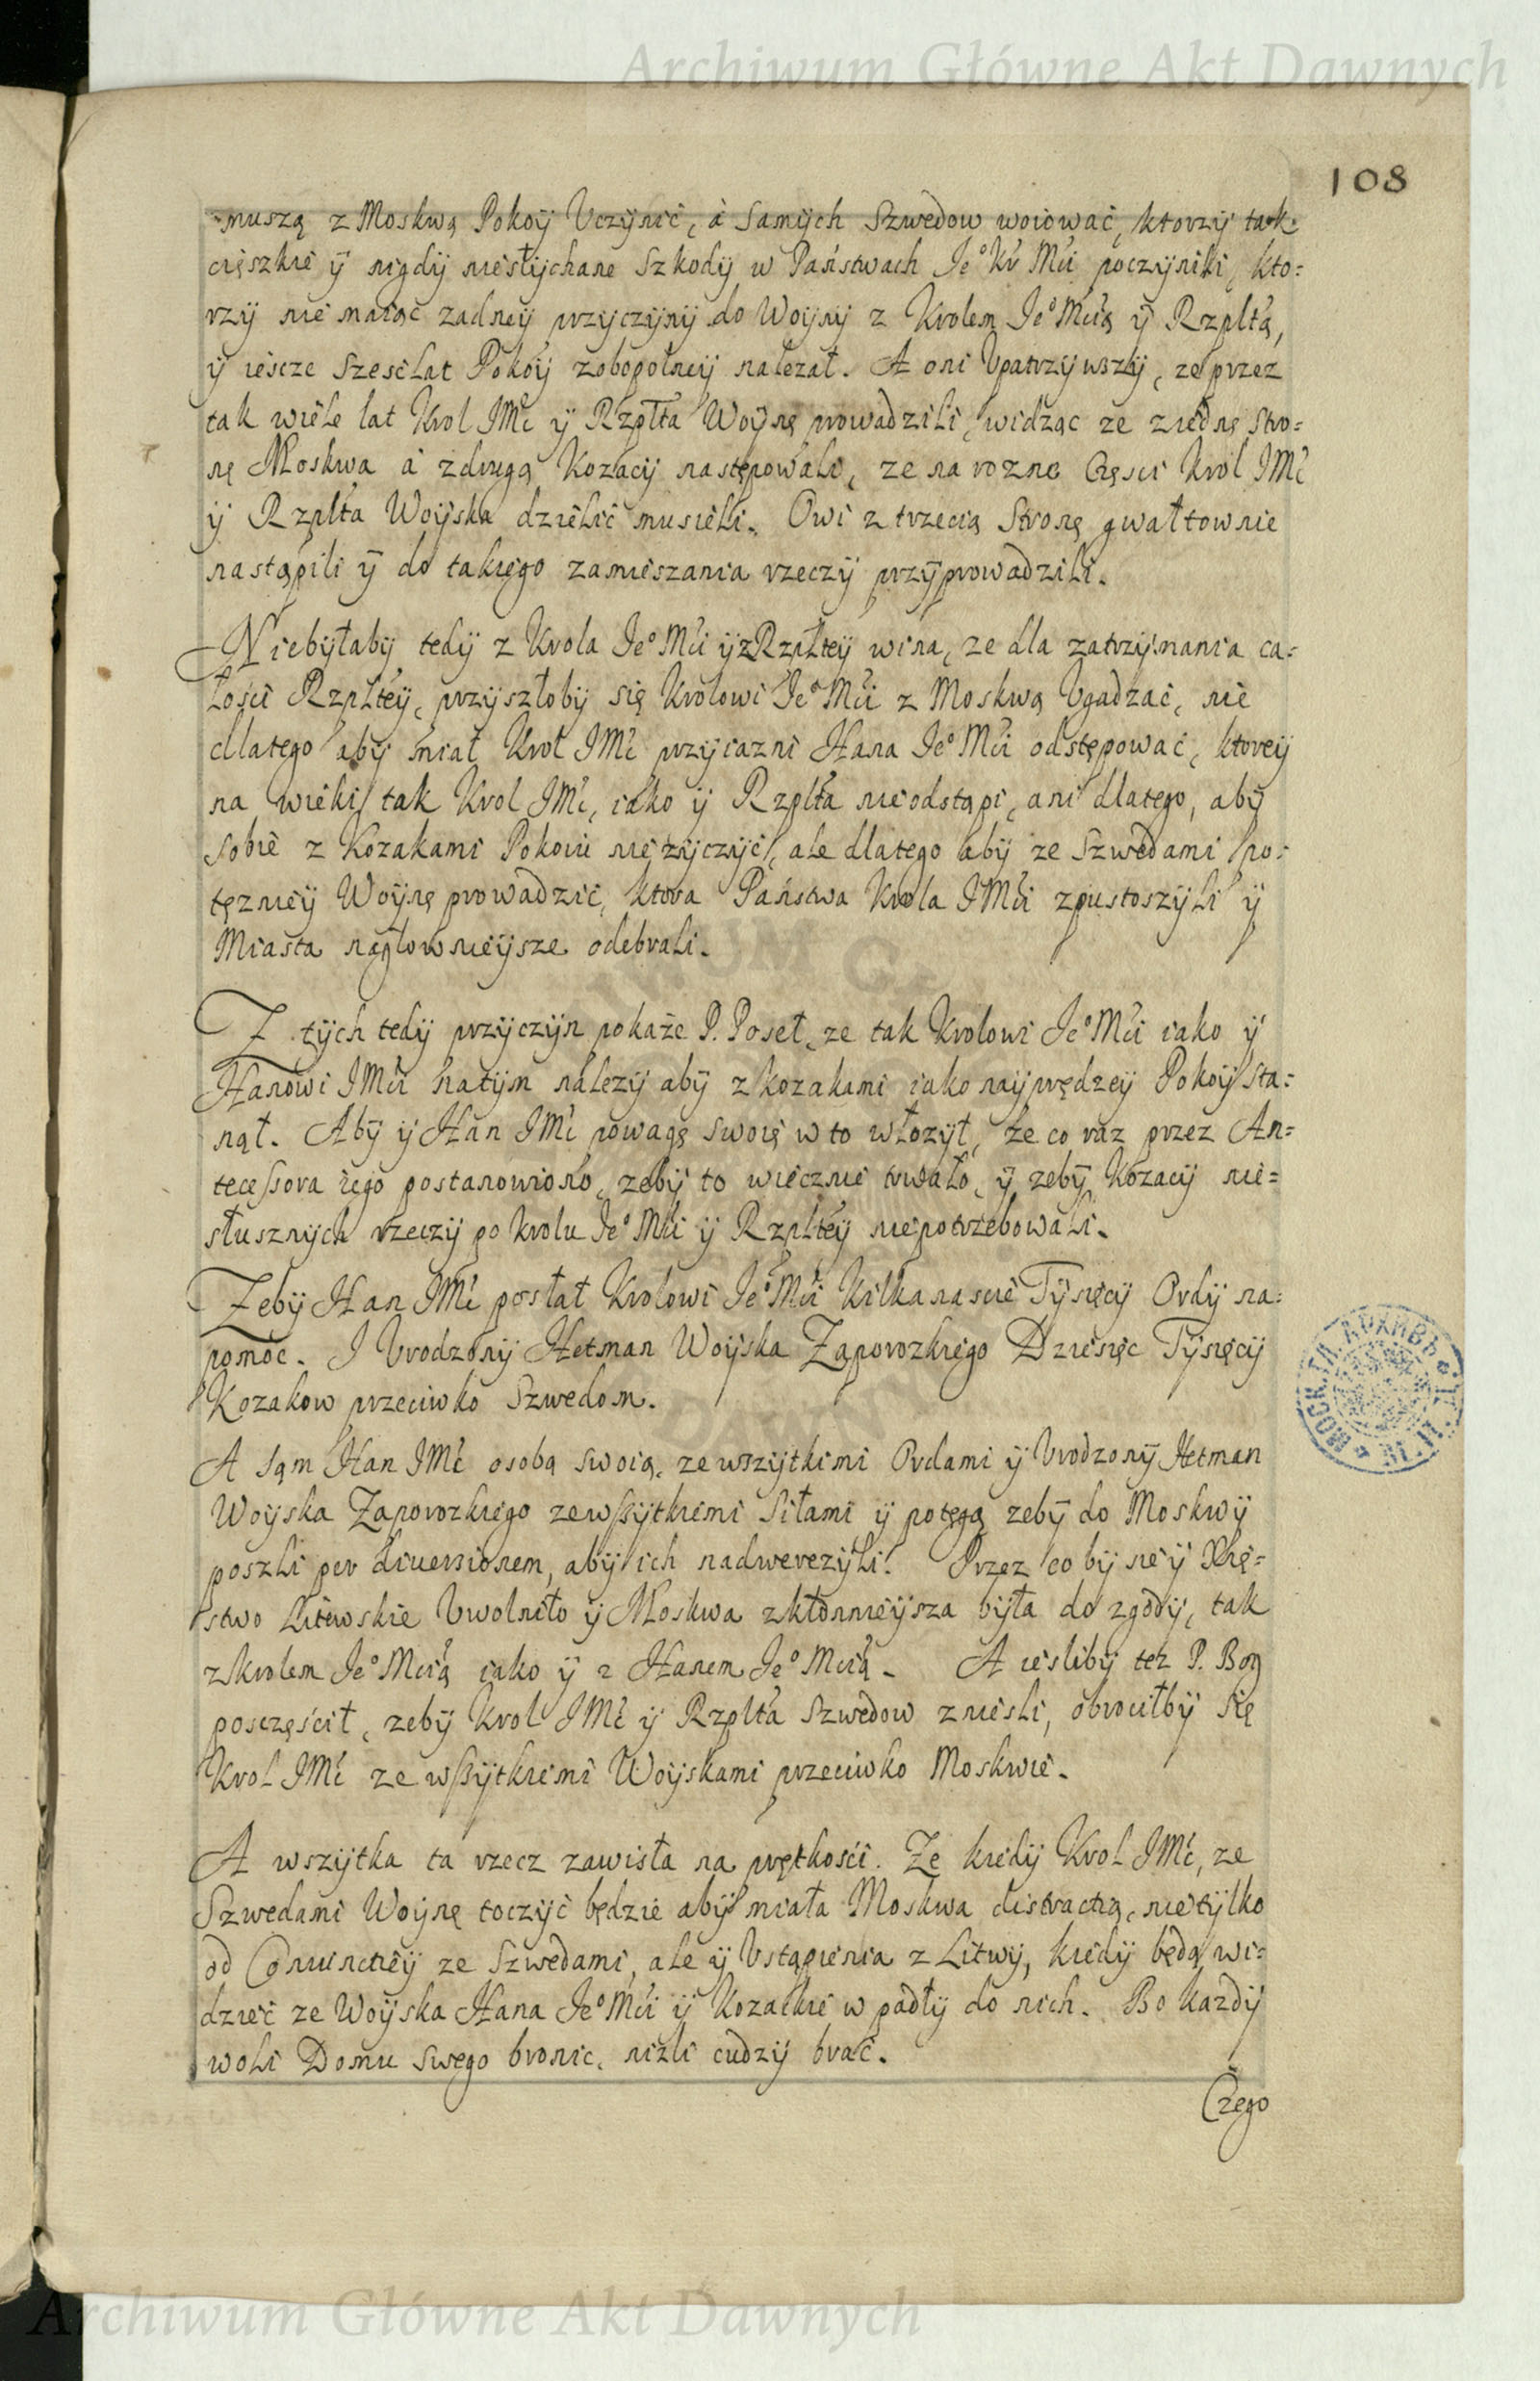 Archiwum Główne Akt Dawnych
108
muszą z Moskwą Pokoÿ Vczÿnić, à Samÿch Szwedow woiować, ktorzÿ tak
cięszkie ÿ nigdÿ niesłÿchane Szkodÿ w Państwach Je° Kr Mći poczÿnili, kto=
rzÿ nie maiąc zadneÿ przÿczÿnÿ do Woÿnÿ z Krolem Je° Mcią ÿ Rzpltą,
ÿ iescze Sześćlat Pokoÿ zobopolneÿ należał. A oni Vpatrzÿwszÿ, że przez
tak wiele lat Krol JMć ÿ Rzplta Woÿnę prowadzili, widząc ze ziednę Stro=
nę Moskwa à zdrugą Kozacÿ następowali, ze na rozne Częsci Krol JMć
ÿ Rzplta Woÿska dzielić musieli. Owi z trzecią Stronę gwałtownie
nastąpili ÿ do takiego zamieszania rzeczÿ przÿprowadzili.
Niebÿłabÿ tedÿ z Krola Je° Mći ÿ z Rzplteÿ wina, ze dla zatrzÿmania ca=
łości Rzplteÿ, przÿszłobÿ się Krolowi Je° Mći z Moskwą Vgadzać, nie
dlatego abÿ miał Krol JMć przÿiazni Hana Je° Mći odstępować, ktoreÿ
na wieki tak Krol JMć, iako ÿ Rzplta nieodstąpi, ani dlatego, abÿ
Sobie z Kozakami Pokoiu nie zÿczÿć, ale dlatego abÿ ze Szwedami po=
tęznieÿ Woÿnę prowadzić, ktora Państwa Krola JMći zpustoszÿli ÿ
Miasta nagłownieÿsze odebrali.
Z tÿch tedÿ przÿczÿn pokaże P. Poseł, ze tak Krolowi Je° Mći iako ÿ
Hanowi JMći natÿm należÿ abÿ z kozakami iako naÿprędzeÿ Pokoÿ Sta=
nął. Abÿ ÿ Han JMć powagę swoię w to włozÿł, że co raz przez An=
tecessora iego postanowiono, zebÿ to wiecznie trwało, ÿ zebÿ Kozacÿ nie=
słusznÿch rzeczÿ po krolu Je° Mći ÿ Rzplteÿ niepotrzebowali.
Zebÿ Han JMć posłał Krolowi Je° Mći Kilkanascie Tÿsięcÿ Ordÿ na=
pomoc. I Vrodzonÿ Hetman Woÿska Zaporozkiego Dziesięć Tÿsięcÿ
Kozakow przeciwko Szwedom.
A Sam Han JMć osobą swoią, ze wszÿtkimi Ordami ÿ Vrodzonÿ Hetman
Woÿska Zaporozkiego zewssÿtkiemi Siłami ÿ potęgą zebÿ do Moskwÿ
poszli per diuersionem, abÿ ich nadwerezÿli. Przez co bÿ sie ÿ Xię=
stwo Litewskie Vwolniło ÿ Moskwa zkłonnieÿsza bÿła do zgodÿ, tak
z krolem Je° Mcią iako ÿ z Hanem Je° Mcią. A iesliby też P. Bog
poszczęścił, zebÿ Krol JMć ÿ Rzplta Szwedow znieśli, obrociłbÿ się
Krol JMć ze wssÿtkiemi Woÿskami przeciwko Moskwie.
A wszÿtka ta rzecz zawisła na prętkości. Że kiedÿ Krol JMć, ze
Szwedami Woÿnę toczÿć będzie abÿ miała Moskwa distractią, nietÿlko
od Coniunctieÿ ze Szwedami, ale ÿ Vstąpienia z Litwÿ, kiedÿ będą wi=
dzieć ze Woÿska Hana Je° Mći ÿ Kozackie wpadłÿ do nich. Bo każdÿ
woli Domu Swego bronic, nizli cudzÿ brać.
Czego
Archiwum Główne Akt Dawnych